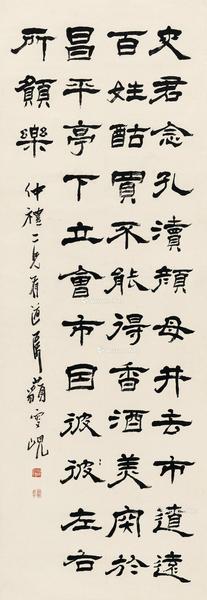 史君念孔瀆顏母井去市遼遠
百姓酤買不能得香酒美肉於
昌平亭下立會市因彼彼左右
所願樂
仲禮二兄有道屬 蕭雲峴